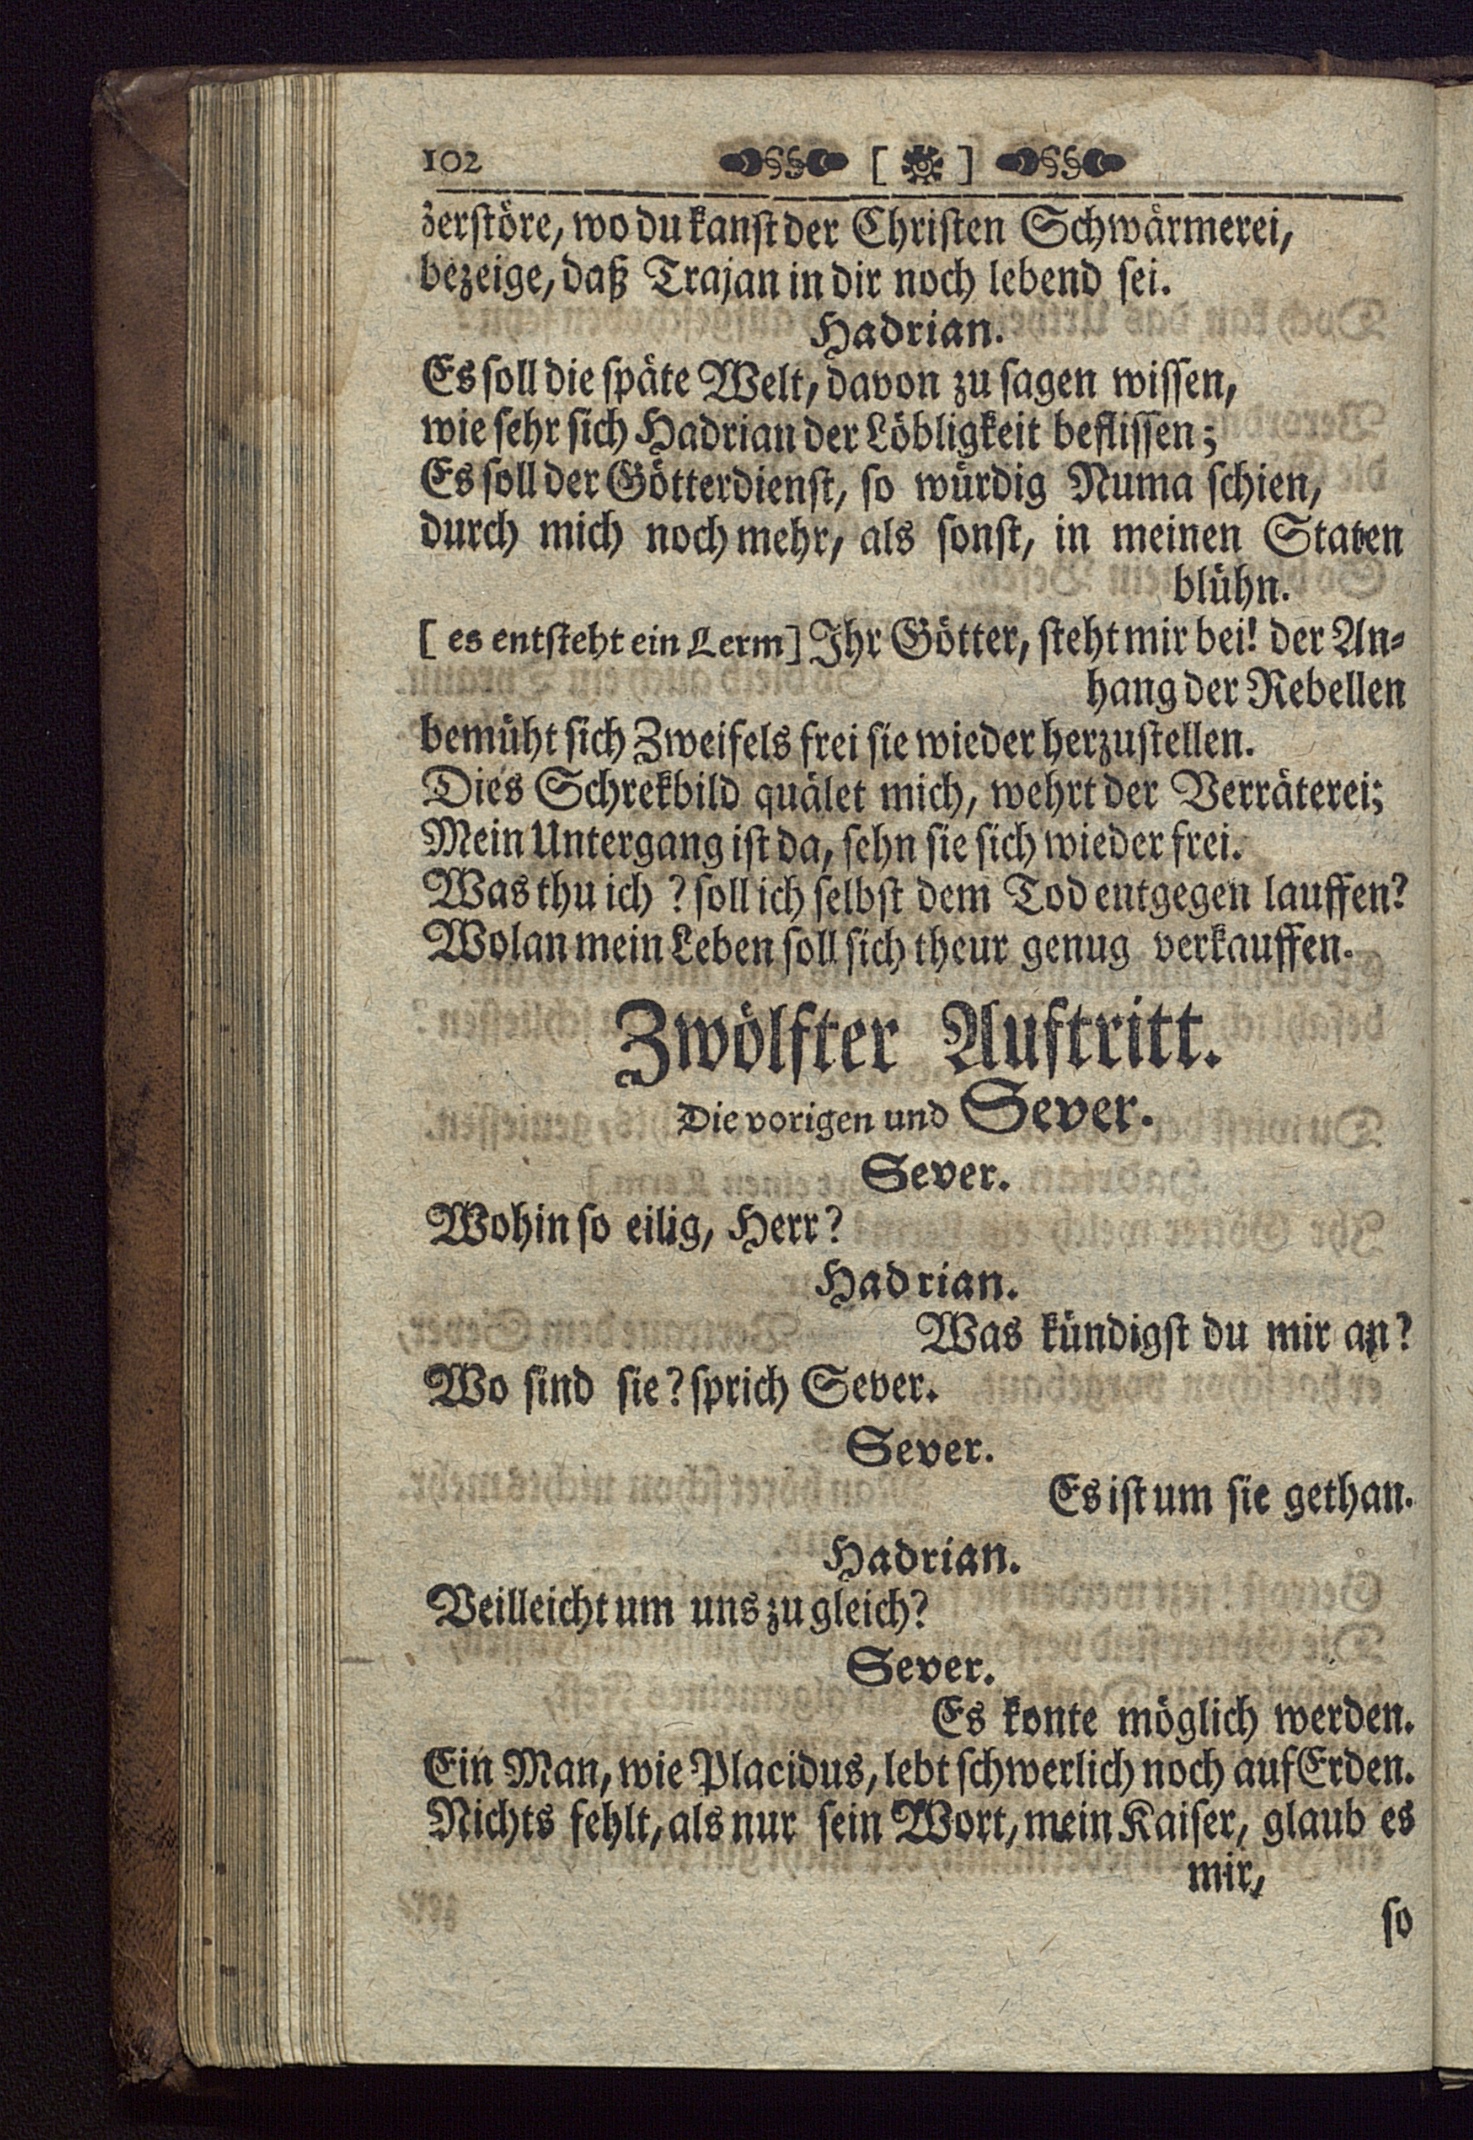 102 [ ]
zerstöre, wo du kanst der Christen Schwärmerei,
bezeige, daß Trajan in dir noch lebend sei.
Hadrian.
Es soll die späte Welt, davon zu sagen wissen,
wie sehr sich Hadrian der Löbligkeit beflissen;
Es soll der Götterdienst, so würdig Numa schien,
durch mich noch mehr, als sonst, in meinen Staten
blühn.
[ es entsteht ein Lerm] Ihr Götter, steht mir bei! der An-
hang der Rebellen
bemüht sich Zweifels frei sie wieder herzustellen.
Dies Schrekbild quälet mich, wehrt der Verräterei;
Mein Untergang ist da, sehn sie sich wieder frei.
Was thu ich ? soll ich selbst dem Tod entgegen lauffen?
Wolan mein Leben soll sich theur genug verkauffen.
Zwölfter Auftritt.
Die vorigen und Sever.
Sever.
Wohin so eilig, Herr?
Hadrian.
Was kündigst du mir an?
Wo sind sie? sprich Sever.
Sever.
Es ist um sie gethan.
Hadrian.
Veilleicht um uns zu gleich?
Sever.
Es konte möglich werden.
Ein Man, wie Placidus, lebt schwerlich noch auf Erden.
Nichts fehlt, als nur sein Wort, mein Kaiser, glaub es
mir,
so